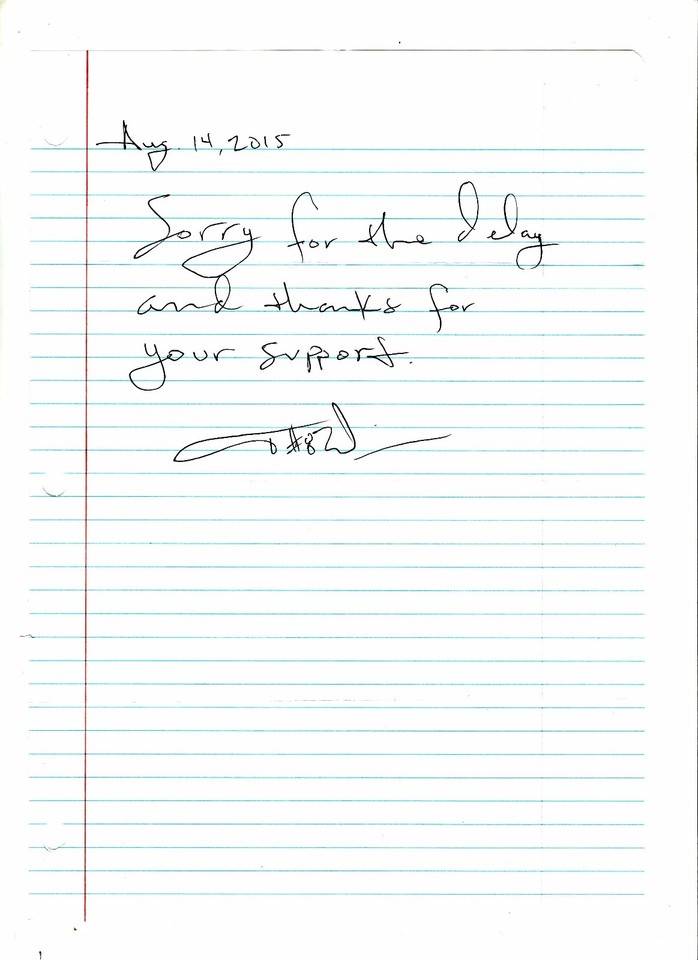 Aug. 14, 2015
Sorry for the delay
and thanks for
your support.
#82